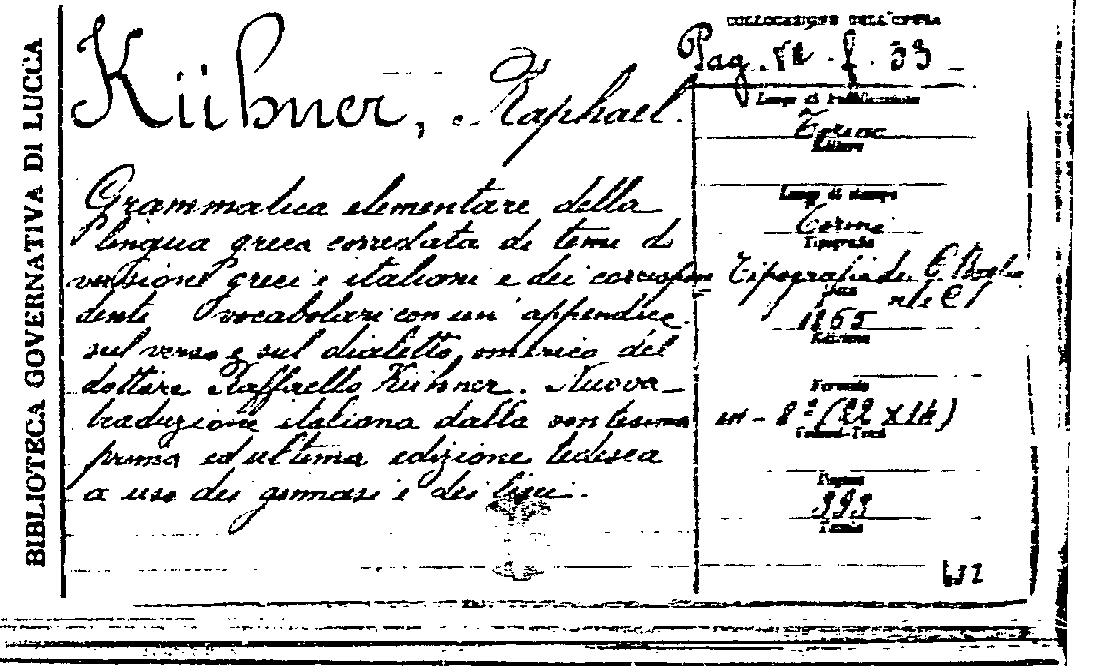 BIBLIOTECA GOVERNATIVA DI LUCCA
Kühner, Raphael.
Grammatica elementare della
lingua greca corredata di temi di
versione greci e italiani e dei corrispon
denti vocabolari con un' appendice
sul verso e sul dialetto omerico del
dottore Raffaello Kühner. Nuova
traduzione italiana dalla ventesima
prima ed ultima edizione tedesca
a uso dei ginnasi e dei licei.
COLLOCAZIONE DELL'OPERA
Pag. f. 33
Luogo di Pubblicazione
Torino
Editore
Luogo di stampa
Torino
Tipografia
Tipografia di
Data
1865
Edizione
Formato
in-8º (22 x 14)
Volumi-Tomi
Pagine
393
Tavole